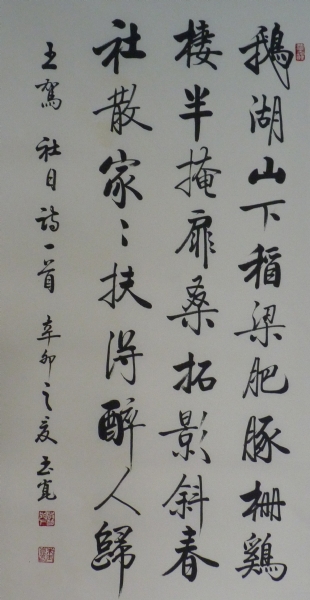 鵝湖山下稻梁肥豚柵鷄
棲半掩扉桑拓影斜春
社散家〻扶得醉人歸
王駕 社日詩一首 辛卯之夏